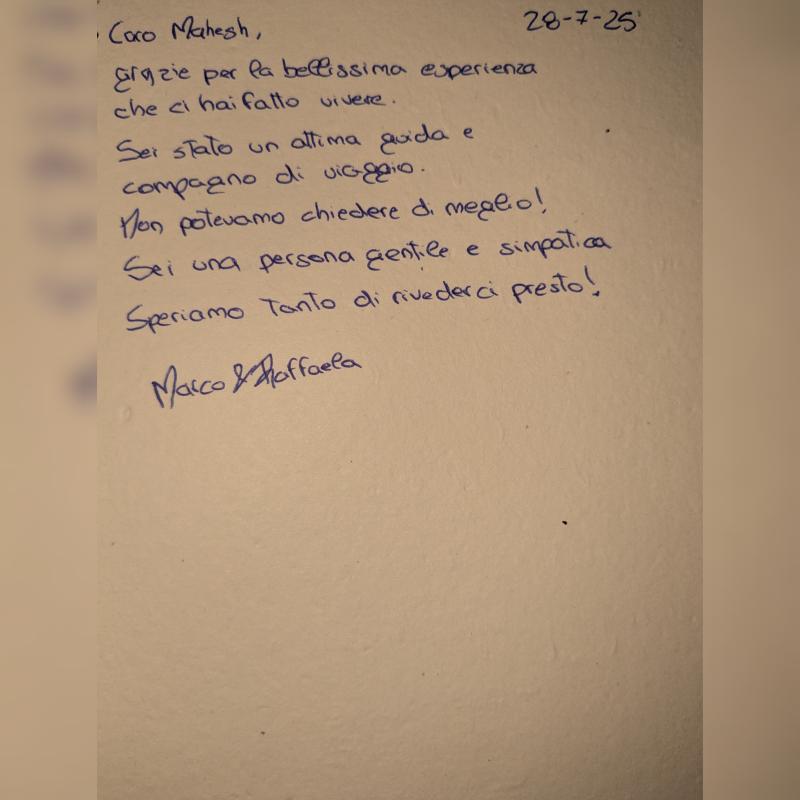 Caro Mahesh, 28-7-25
grazie per la bellissima esperienza
che ci hai fatto vivere.
Sei stato un ottima guida e
compagno di viaggio.
Non potevamo chiedere di meglio!
Sei una persona gentile e simpatica
Speriamo tanto di rivederci presto!
Marco & Raffaela